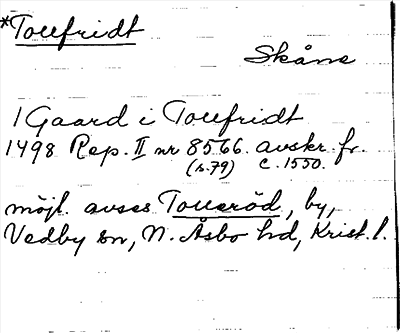 *Tollefridt
Skåne
1 Gaard i Tollefridt
1498 Rep. II nr 8566. avskr. fr.
(s. 79) c. 1550.
möjl. avses Tolleröd, by,
Vedby sn, N. Åsbo hd, Krist. l.